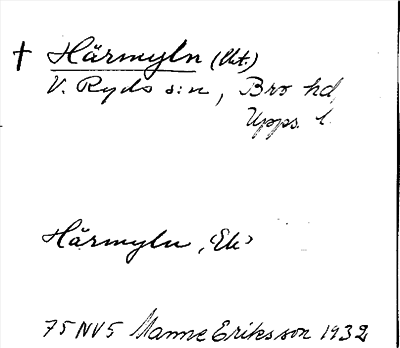 † Härmyln (Ut.)
V. Ryds s:n, Bro hd,
Upps. l.
Härmyln,
75 NV5 Manne Eriksson 1932